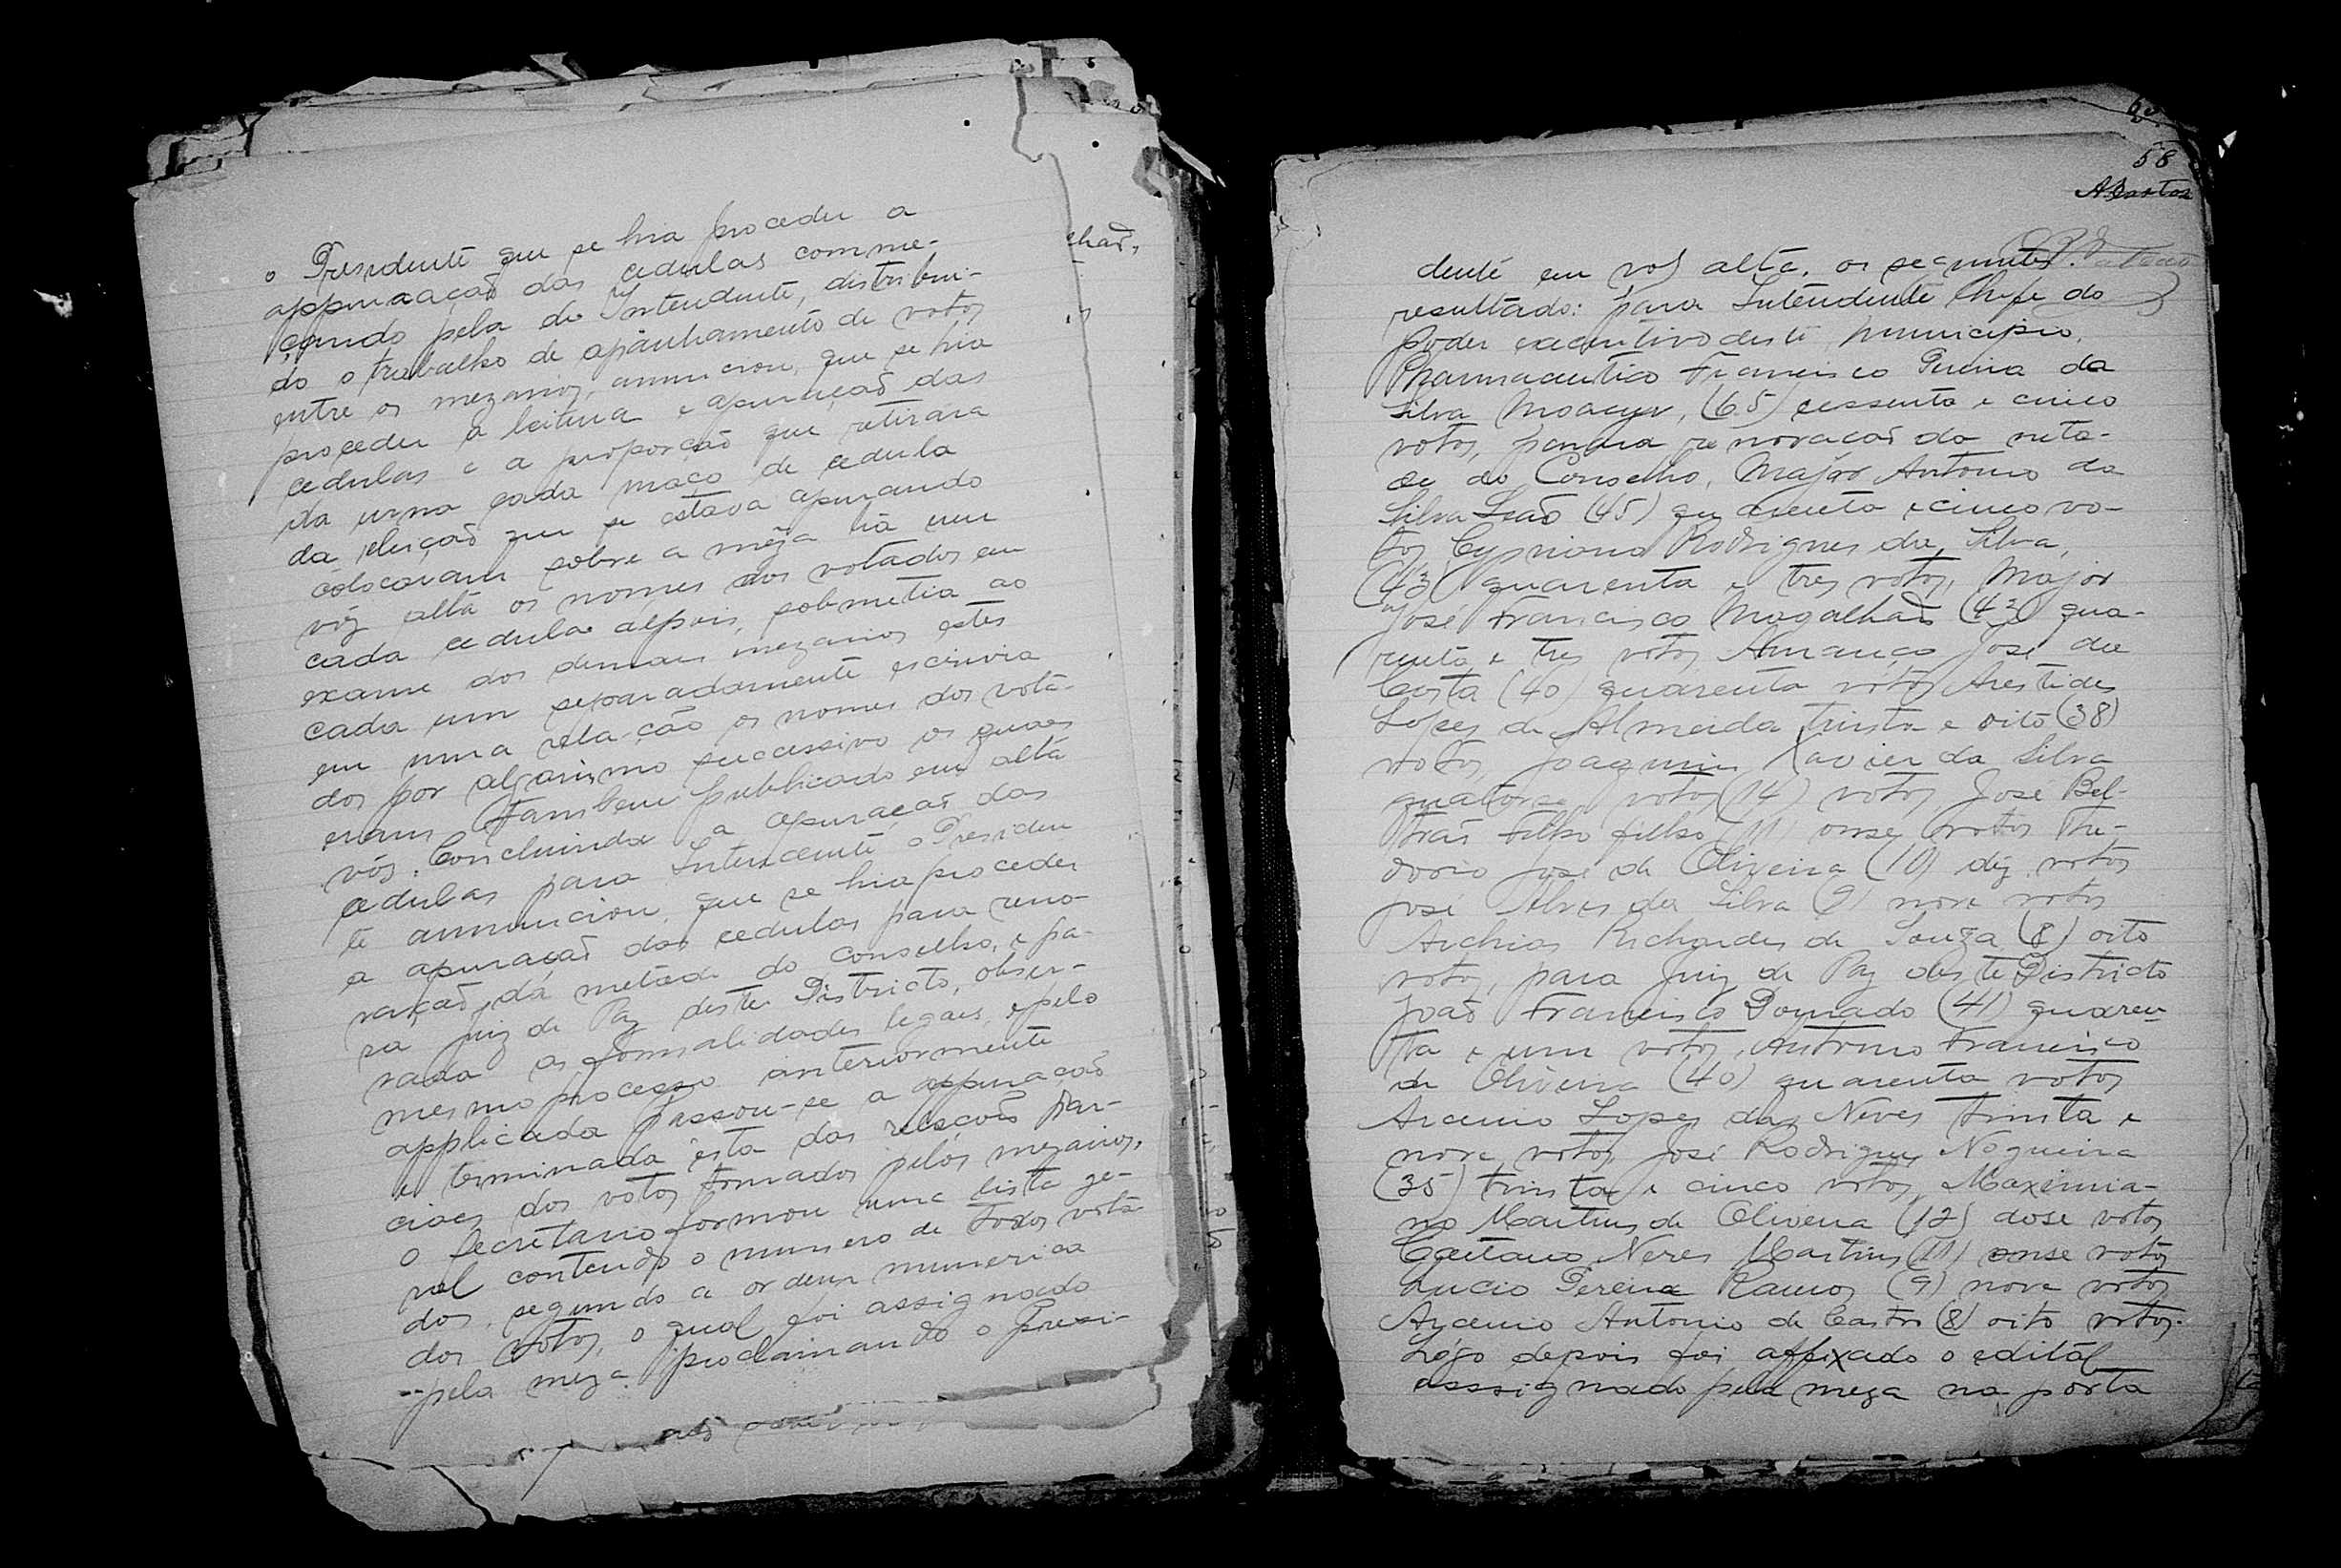 o Presidente que se hia proceder a
appuração das cedulas comme-
çando pela de Intendente, distribui-
do o trabalho de apanhamento de votos
entre os mezarios, annunciou, que se hia
proceder a leitura e apuração das
cedulas e a proporção que retirára
da urna cada maço de cedula
da eleição que se estava apurando
colocavam sobre a meza lia em
vóz altá os nomes dos votados em
cada cedula depois, sobmetia ao
exame dos demais mezarios estes
cada um separadamente escrivia
em uma rela-ção os nomes dos vota-
dos por algarismo successivo os quaes
eram tambem publicado em altá
vós. Concluindo a apuração das
cedulas para Intendente o Presiden
te annunciou, que se hia proceder
a apuração das cedulas para reno-
vação, dá metade do conselho, e pa-
ra juiz de Paz deste Districto, obser-
vada as formalidades legaes, e pelo
mesmo processo anteriormente
applicada passou-se a appuração
e terminada esta das relacões par-
ciaes dos votos tomados pelos mezarios,
o secretario formou uma lista ge-
ral contendo o numero de todos vota
dos, segundo a ordem numerica
dos votos, o qual foi assignado
pela meza proclamando o presi-
58
ABastos
dente em voz altá, os seguintes
resultado: para Intendente Chefe do
Poder executivo deste municipio,
Pharmaceutico Francisco Pereira da
Silva Moacyr, (65) cessenta e cinco
votos, para a renovacão da meta-
de do Conselho, Major Antonio da
Silva Leão (45) quarenta e cinco vo-
tos Cypriano Rodrigues da Silva,
(43) quarenta e tres votos, Major
José Francisco Magalhães (43) qua-
renta e tres votos Amanço José da
Costa (40) quarenta votos Arestides
Lopes de Almeida trinta e oito (38)
votos, Joaquim Xavier da Silva
quatorse votos (14) votos, José Bel-
trão Filho filho (11) onse votos The-
dorio José de Oliveira (10) déz votos
José Alves da Silva (9) nove votos
Archias Richardes de Souza (8) oito
votos, para Juiz de Paz deste Districto
João Francisco Dourado (41) quaren
ta e um votos, Antonio Francisco
de Oliveira (40) quarenta votos
Arcenio Lopes das Neves trinta e
nove votos, José Rodrigues Nogueira
(35) trinta e cinco votos, Maximia-
no Martins de Oliveira (12) dose votos
Caetano Neres Martins (11) onse votos
Lucio Pereira Ramos (9) nove votos
Arcenio Antonio de Castro (8) oito votos.
Lógo depois foi affixado o editál
asssignado pela meza na porta